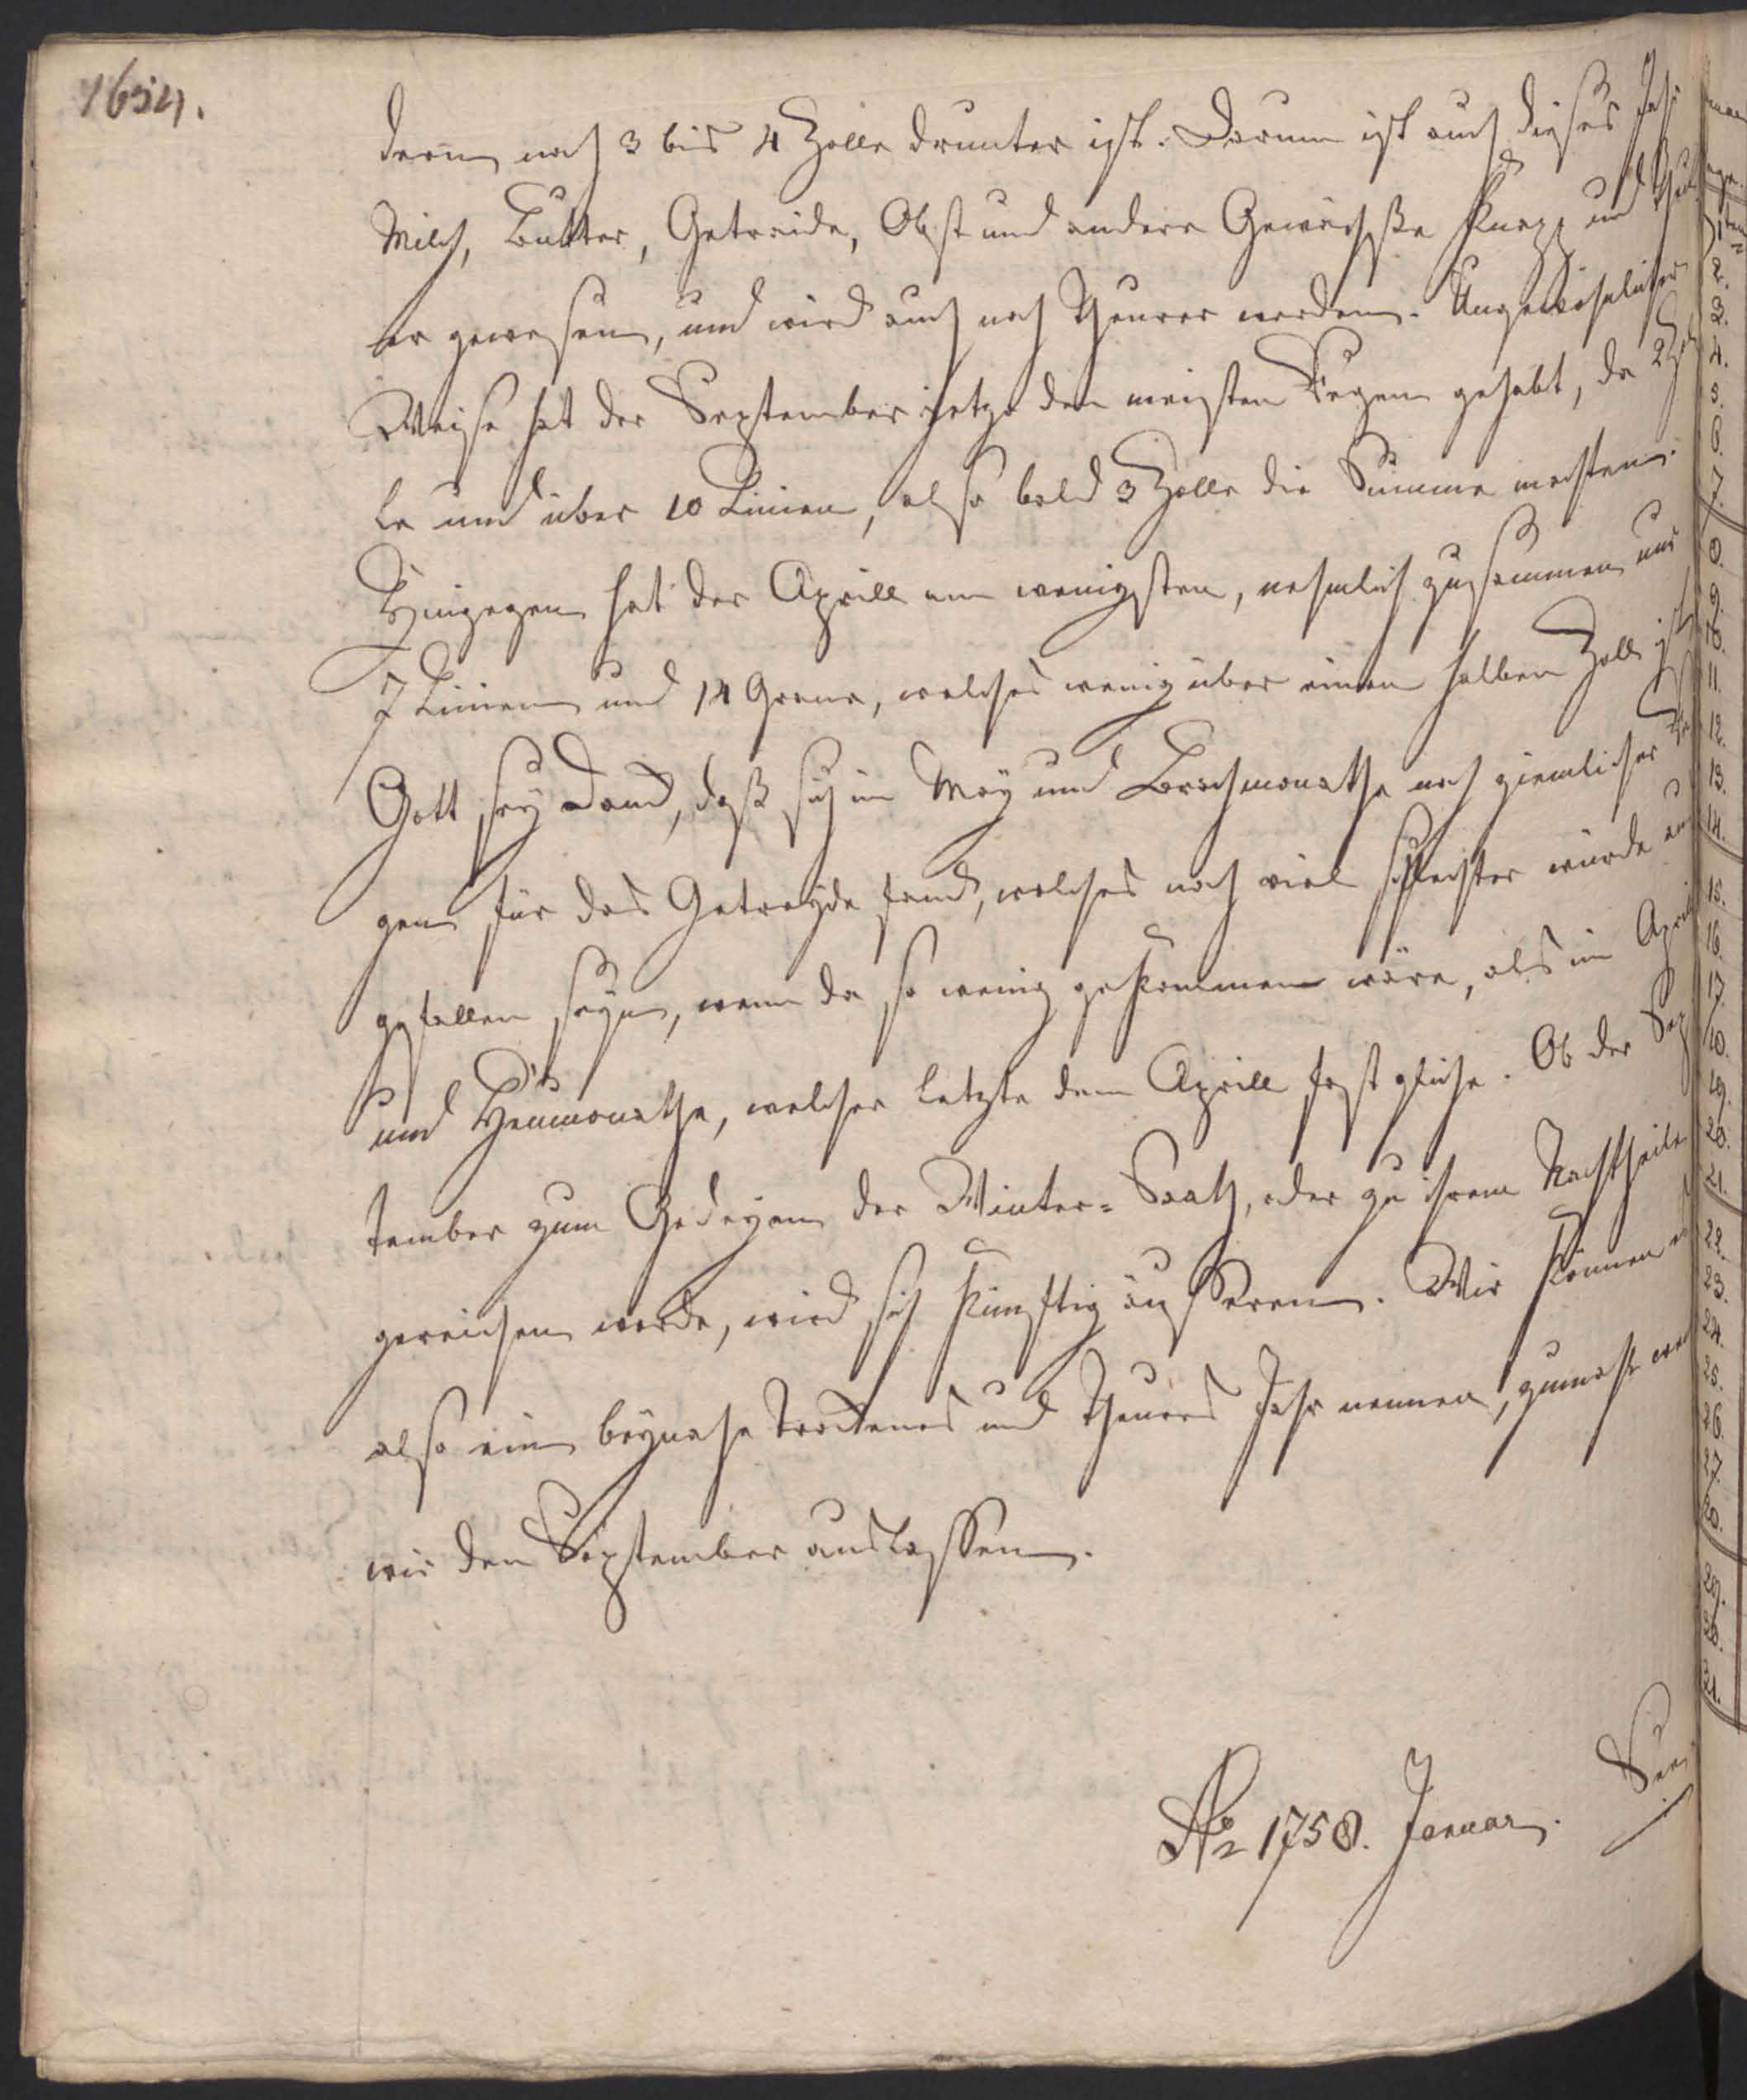 1654.
dern noch 3 bis 4 Zolle drunter ist. Darum ist auch dieses Jahr
Milch, Butter, Getraide, Obst und andere Gewächße knapp und theu
er gewesen, und wird auch noch theurer werden. Ungewöhnlicher
Weise hat der September jetzo den meisten Regen gehabt, da 2 Zol
le und über 10 Linien, also bald 3 Zolle die Summe machten.
Hingegen hat der Aprill am wenigsten, nehmlich zusammen nur
7 Linien und 14 Grane, welches wenig über einen halben Zoll ist
Gott sey Danck, daß sich im May und Brachmonathe noch ziemlicher Re
gen für das Getreyde fand, welches noch viel schlechter würde aus
gefallen seyn, wenn da so wenig gekommen wäre, als im Aprill
und Heumonathe, welcher letzte dem Aprill fast gliche. Ob der Sep
tember zum Gedeyen der Winter=Saat, oder zu ihrem Nachtheile
gereichen werde, wird sich künftig äusseren. Wir können es
also ein beynahe trockenes und theures Jahr nennen, zumahl wenn
wir den September auslassen.
Ao 1758. Januar.
1
2.
3.
4.
5.
6.
7.
8.
9.
10.
11.
12.
13.
14.
15.
16.
17.
18.
19.
20.
21.
22.
23.
24.
25.
26.
27.
28.
29.
30.
31.